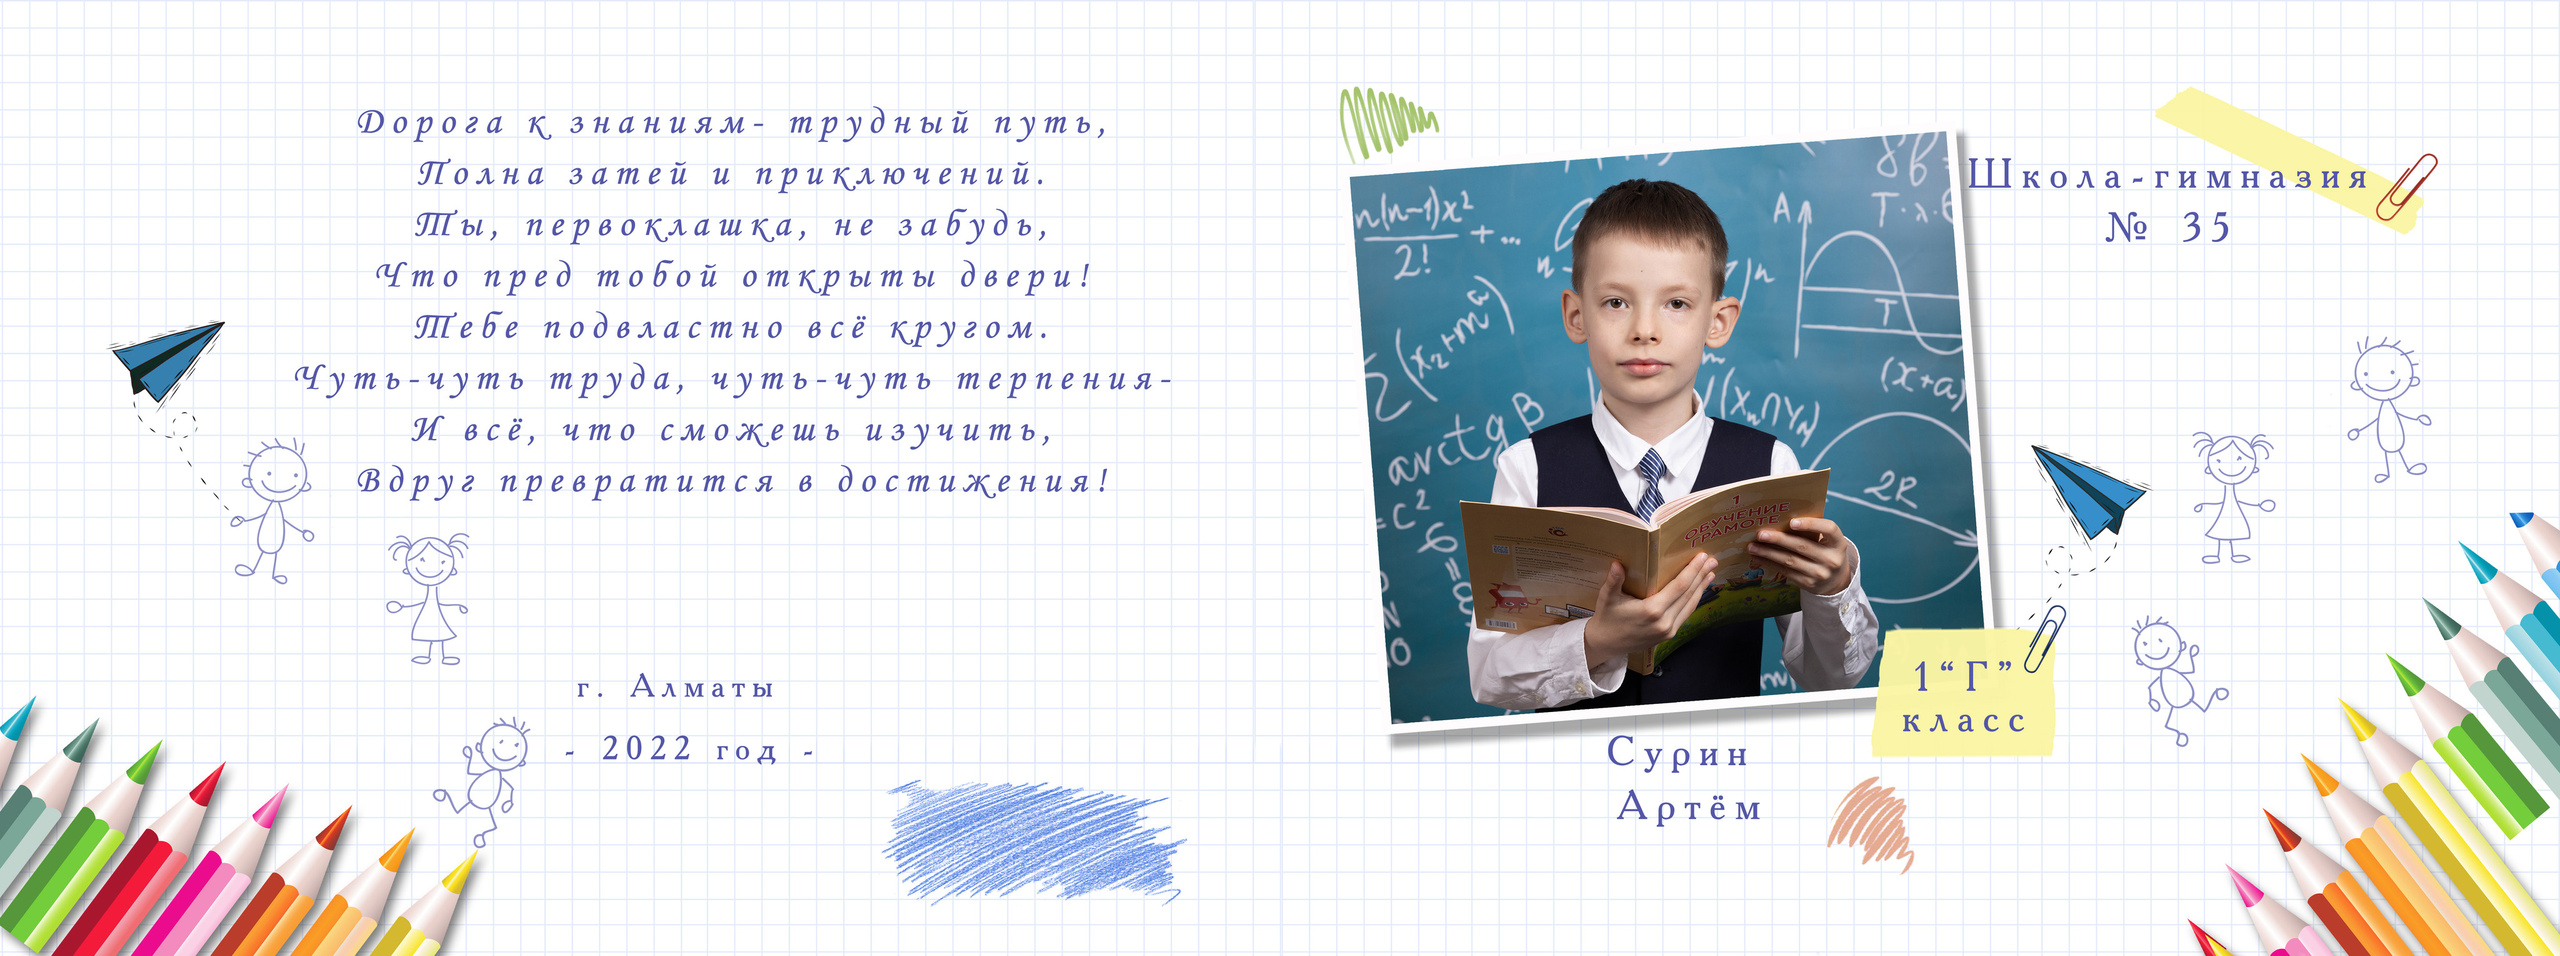 Дорога к знаниям- трудный путь,
Полна затей и приключений.
Ты, первоклашка, не забудь,
Что пред тобой открыты двери!
Тебе подвластно всё кругом.
Чуть-чуть труда, чуть-чуть терпения-
И всё, что сможешь изучить,
Вдруг превратится в достижения!
г. Алматы
- 2022 год -
Школа-гимназия
№ 35
n(n-1)x²
2!
+...
A
T
(x₂+m)
(x+a)
arctg B
2R
1
ОБУЧЕНИЕ
ГРАМОТЕ
1“Г”
класс
Сурин
Артём